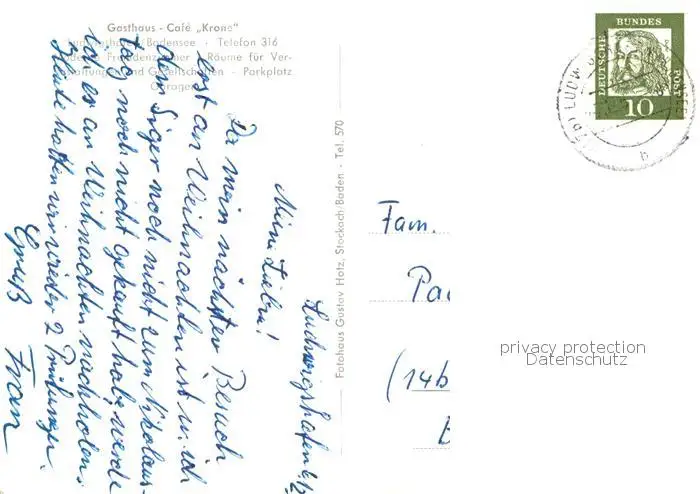 Gasthaus - Café „Krone"
Ludwigshafen/Bodensee · Telefon 316
Moderne Fremdenzimmer · Räume für Ver-
anstaltungen und Gesellschaften · Parkplatz
Garagen
Ludwigshafen
Meine Lieben!
Da mein nächster Besuch
erst an Weihnachten ist u. ich
dem Siger noch nicht zum Nikolaus-
tag noch nicht gekauft habe, werde
ich es an Weihnachten nachholen.
Heute hatten wir wieder 2 Prüfungen.
Gruß
Fotohaus Gustav Hotz, Stockach/Baden - Tel. 570
DEUTSCHE BUNDES POST
10
LUDWIGS
b
Fam.
(14b
privacy protection
Datenschutz